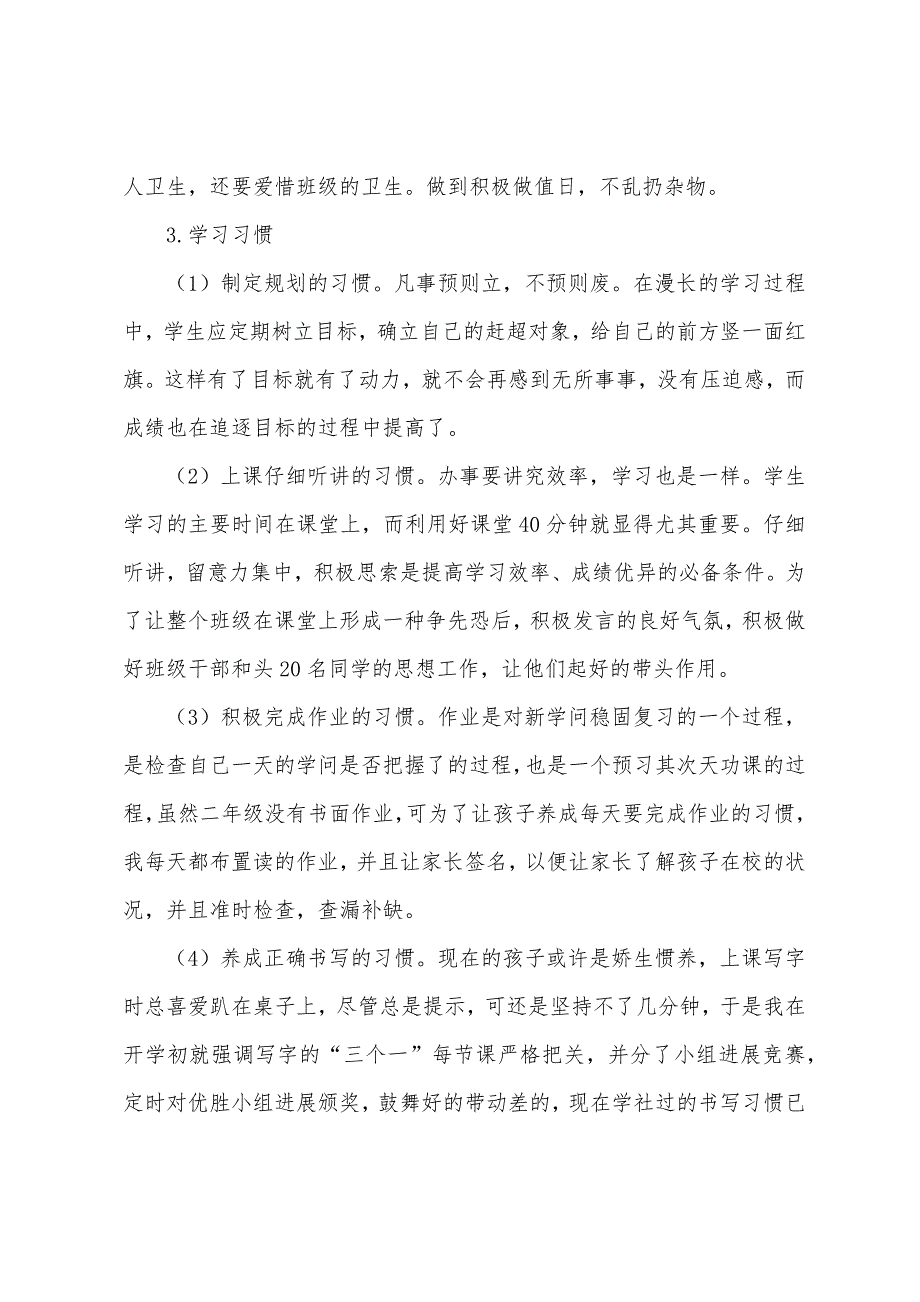 人卫生，还要爱惜班级的卫生。做到积极做值日，不乱扔杂物。
3.学习习惯
（1）制定规划的习惯。凡事预则立，不预则废。在漫长的学习过程
中，学生应定期树立目标，确立自己的赶超对象，给自己的前方竖一面红
旗。这样有了目标就有了动力，就不会再感到无所事事，没有压迫感，而
成绩也在追逐目标的过程中提高了。
（2）上课仔细听讲的习惯。办事要讲究效率，学习也是一样。学生
学习的主要时间在课堂上，而利用好课堂 40 分钟就显得尤其重要。仔细
听讲，留意力集中，积极思索是提高学习效率、成绩优异的必备条件。为
了让整个班级在课堂上形成一种争先恐后，积极发言的良好气氛，积极做
好班级干部和头 20 名同学的思想工作，让他们起好的带头作用。
（3）积极完成作业的习惯。作业是对新学问稳固复习的一个过程，
是检查自己一天的学问是否把握了的过程，也是一个预习其次天功课的过
程，虽然二年级没有书面作业，可为了让孩子养成每天要完成作业的习惯，
我每天都布置读的作业，并且让家长签名，以便让家长了解孩子在校的状
况，并且准时检查，查漏补缺。
（4）养成正确书写的习惯。现在的孩子或许是娇生惯养，上课写字
时总喜爱趴在桌子上，尽管总是提示，可还是坚持不了几分钟，于是我在
开学初就强调写字的“三个一”每节课严格把关，并分了小组进展竞赛，
定时对优胜小组进展颁奖，鼓舞好的带动差的，现在学社过的书写习惯已